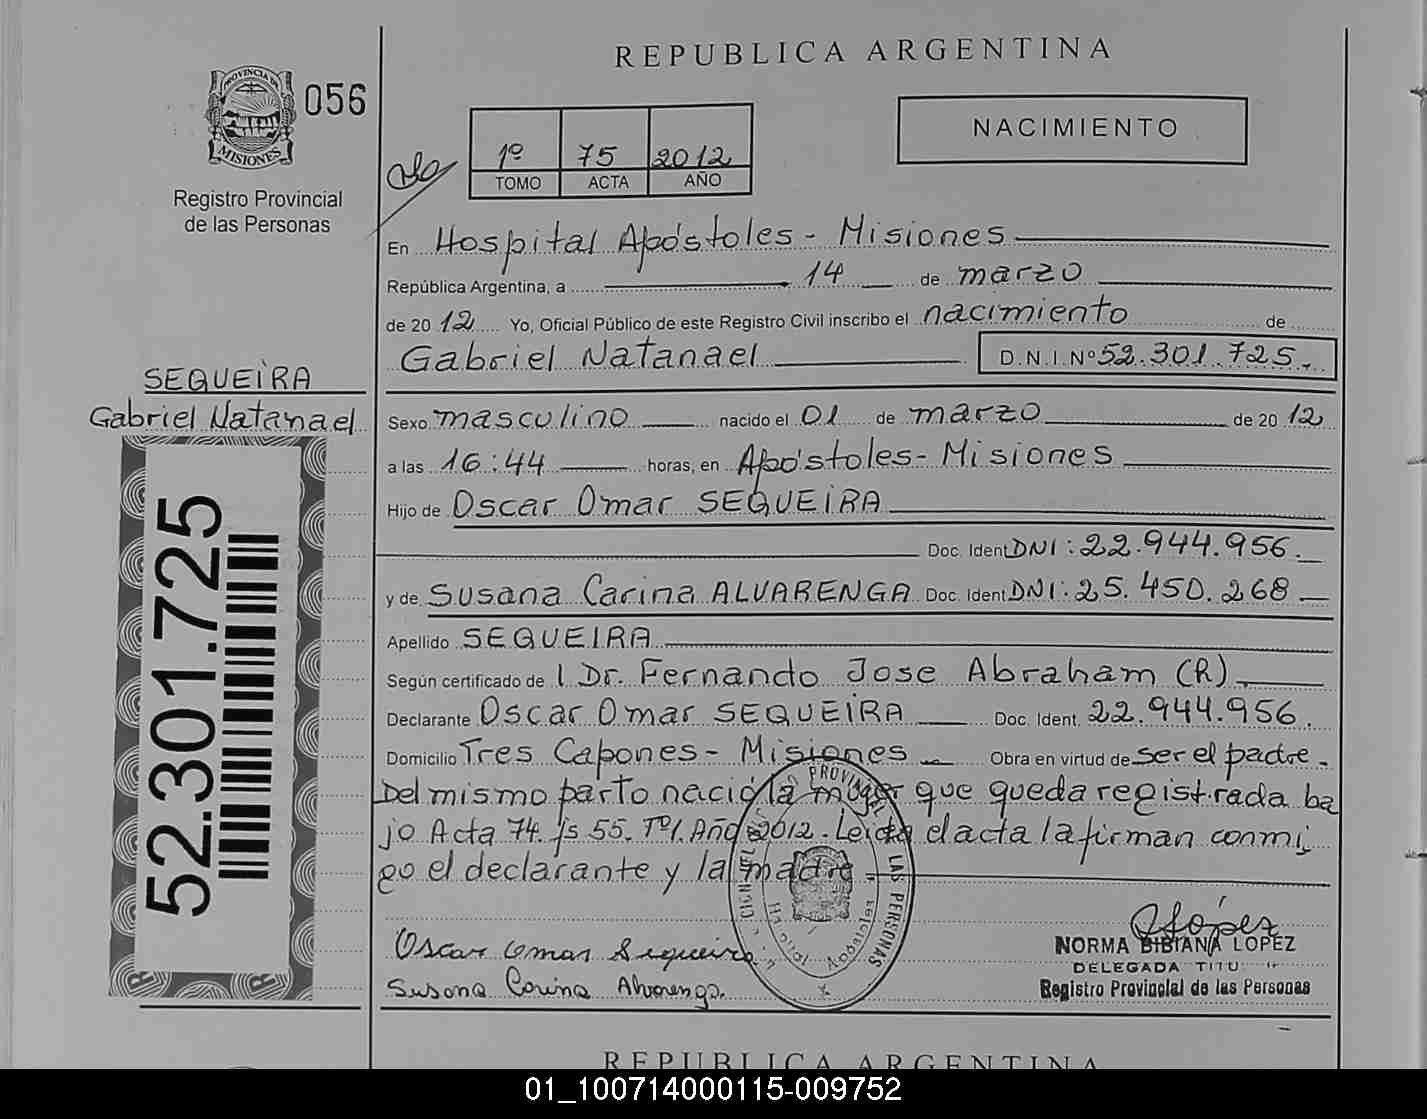 REPUBLICA ARGENTINA
PROVINCIA DE
MISIONES
056
Registro Provincial
de las Personas
1º 75 2012
TOMO ACTA AÑO
NACIMIENTO
En Hospital Apóstoles - Misiones
República Argentina, a 14 de marzo
de 2012 Yo, Oficial Público de este Registro Civil inscribo el nacimiento de
Gabriel Natanael D.N.I.Nº 52.301.725.
SEQUEIRA
Gabriel Natanael
52.301.725
Sexo masculino nacido el 01 de marzo de 2012
a las 16:44 horas, en Apóstoles - Misiones
Hijo de Oscar Omar SEQUEIRA
Doc. Ident DNI: 22.944.956.
y de Susana Carina ALVARENGA Doc. Ident DNI: 25.450.268
Apellido SEQUEIRA
Según certificado de l Dr. Fernando Jose Abraham (R)
Declarante Oscar Omar SEQUEIRA Doc. Ident. 22.944.956.
Domicilio Tres Capones - Misiones Obra en virtud de ser el padre.
Del mismo parto nació la mujer que queda registrada ba
jo Acta 74. fs 55. Tº1. Año 2012. Leida el acta la firman conmi
go el declarante y la madre
PROVINCIAL
LAS PERSONAS
Hospital Apostoles
Oscar Omar Sequeira
Susana Carina Alvarenga.
López
NORMA BIBIANA LOPEZ
DELEGADA
Registro Provincial de las Personas
REPUBLICA ARGENTINA
01_100714000115-009752